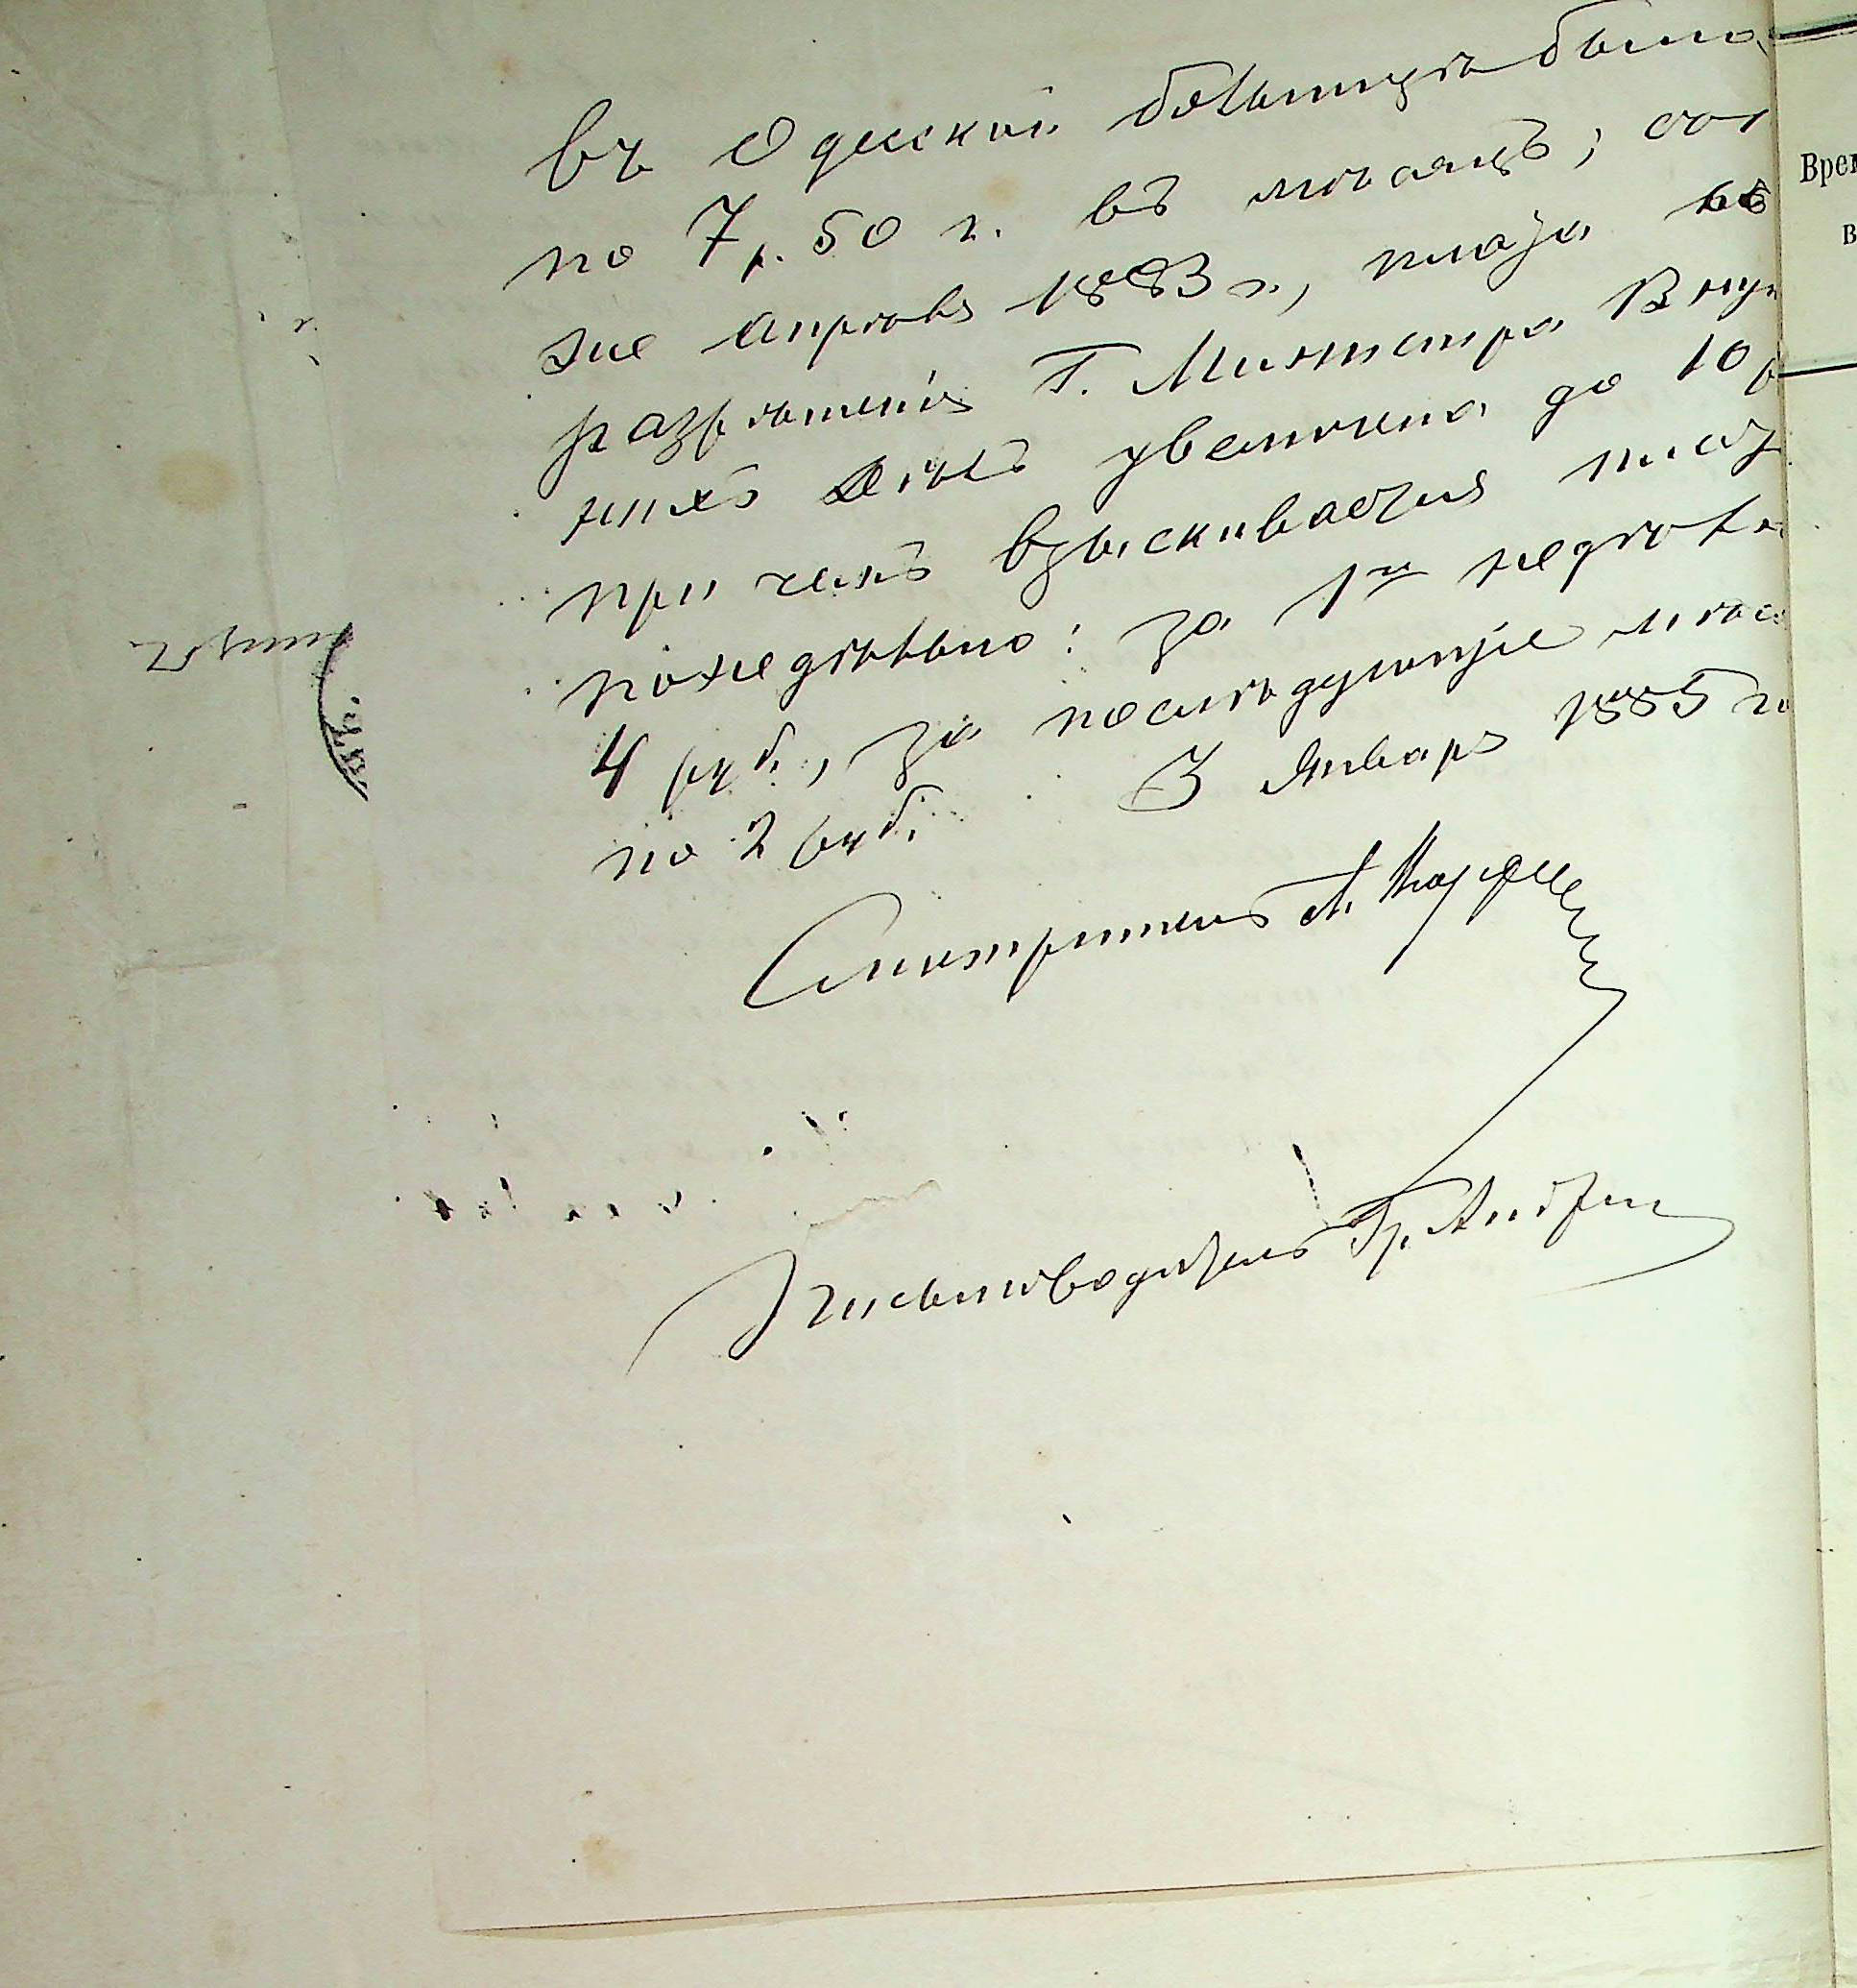 въ Одесской больницѣ было
по 7 р. 50 к. въ мѣсяцъ; съ
же апрѣля 1883 г., плата
разрѣшенія Г. Министра Внут
нихъ Дѣлъ увеличена до 10 р
при чемъ взыскивается плат
понедѣльно: за 1ю недѣлю
4 руб., за послѣдующіе
по 2 руб. 3 Январь 1885 го
Смотритель А.
Письмоводитель Гр.
Врем
в